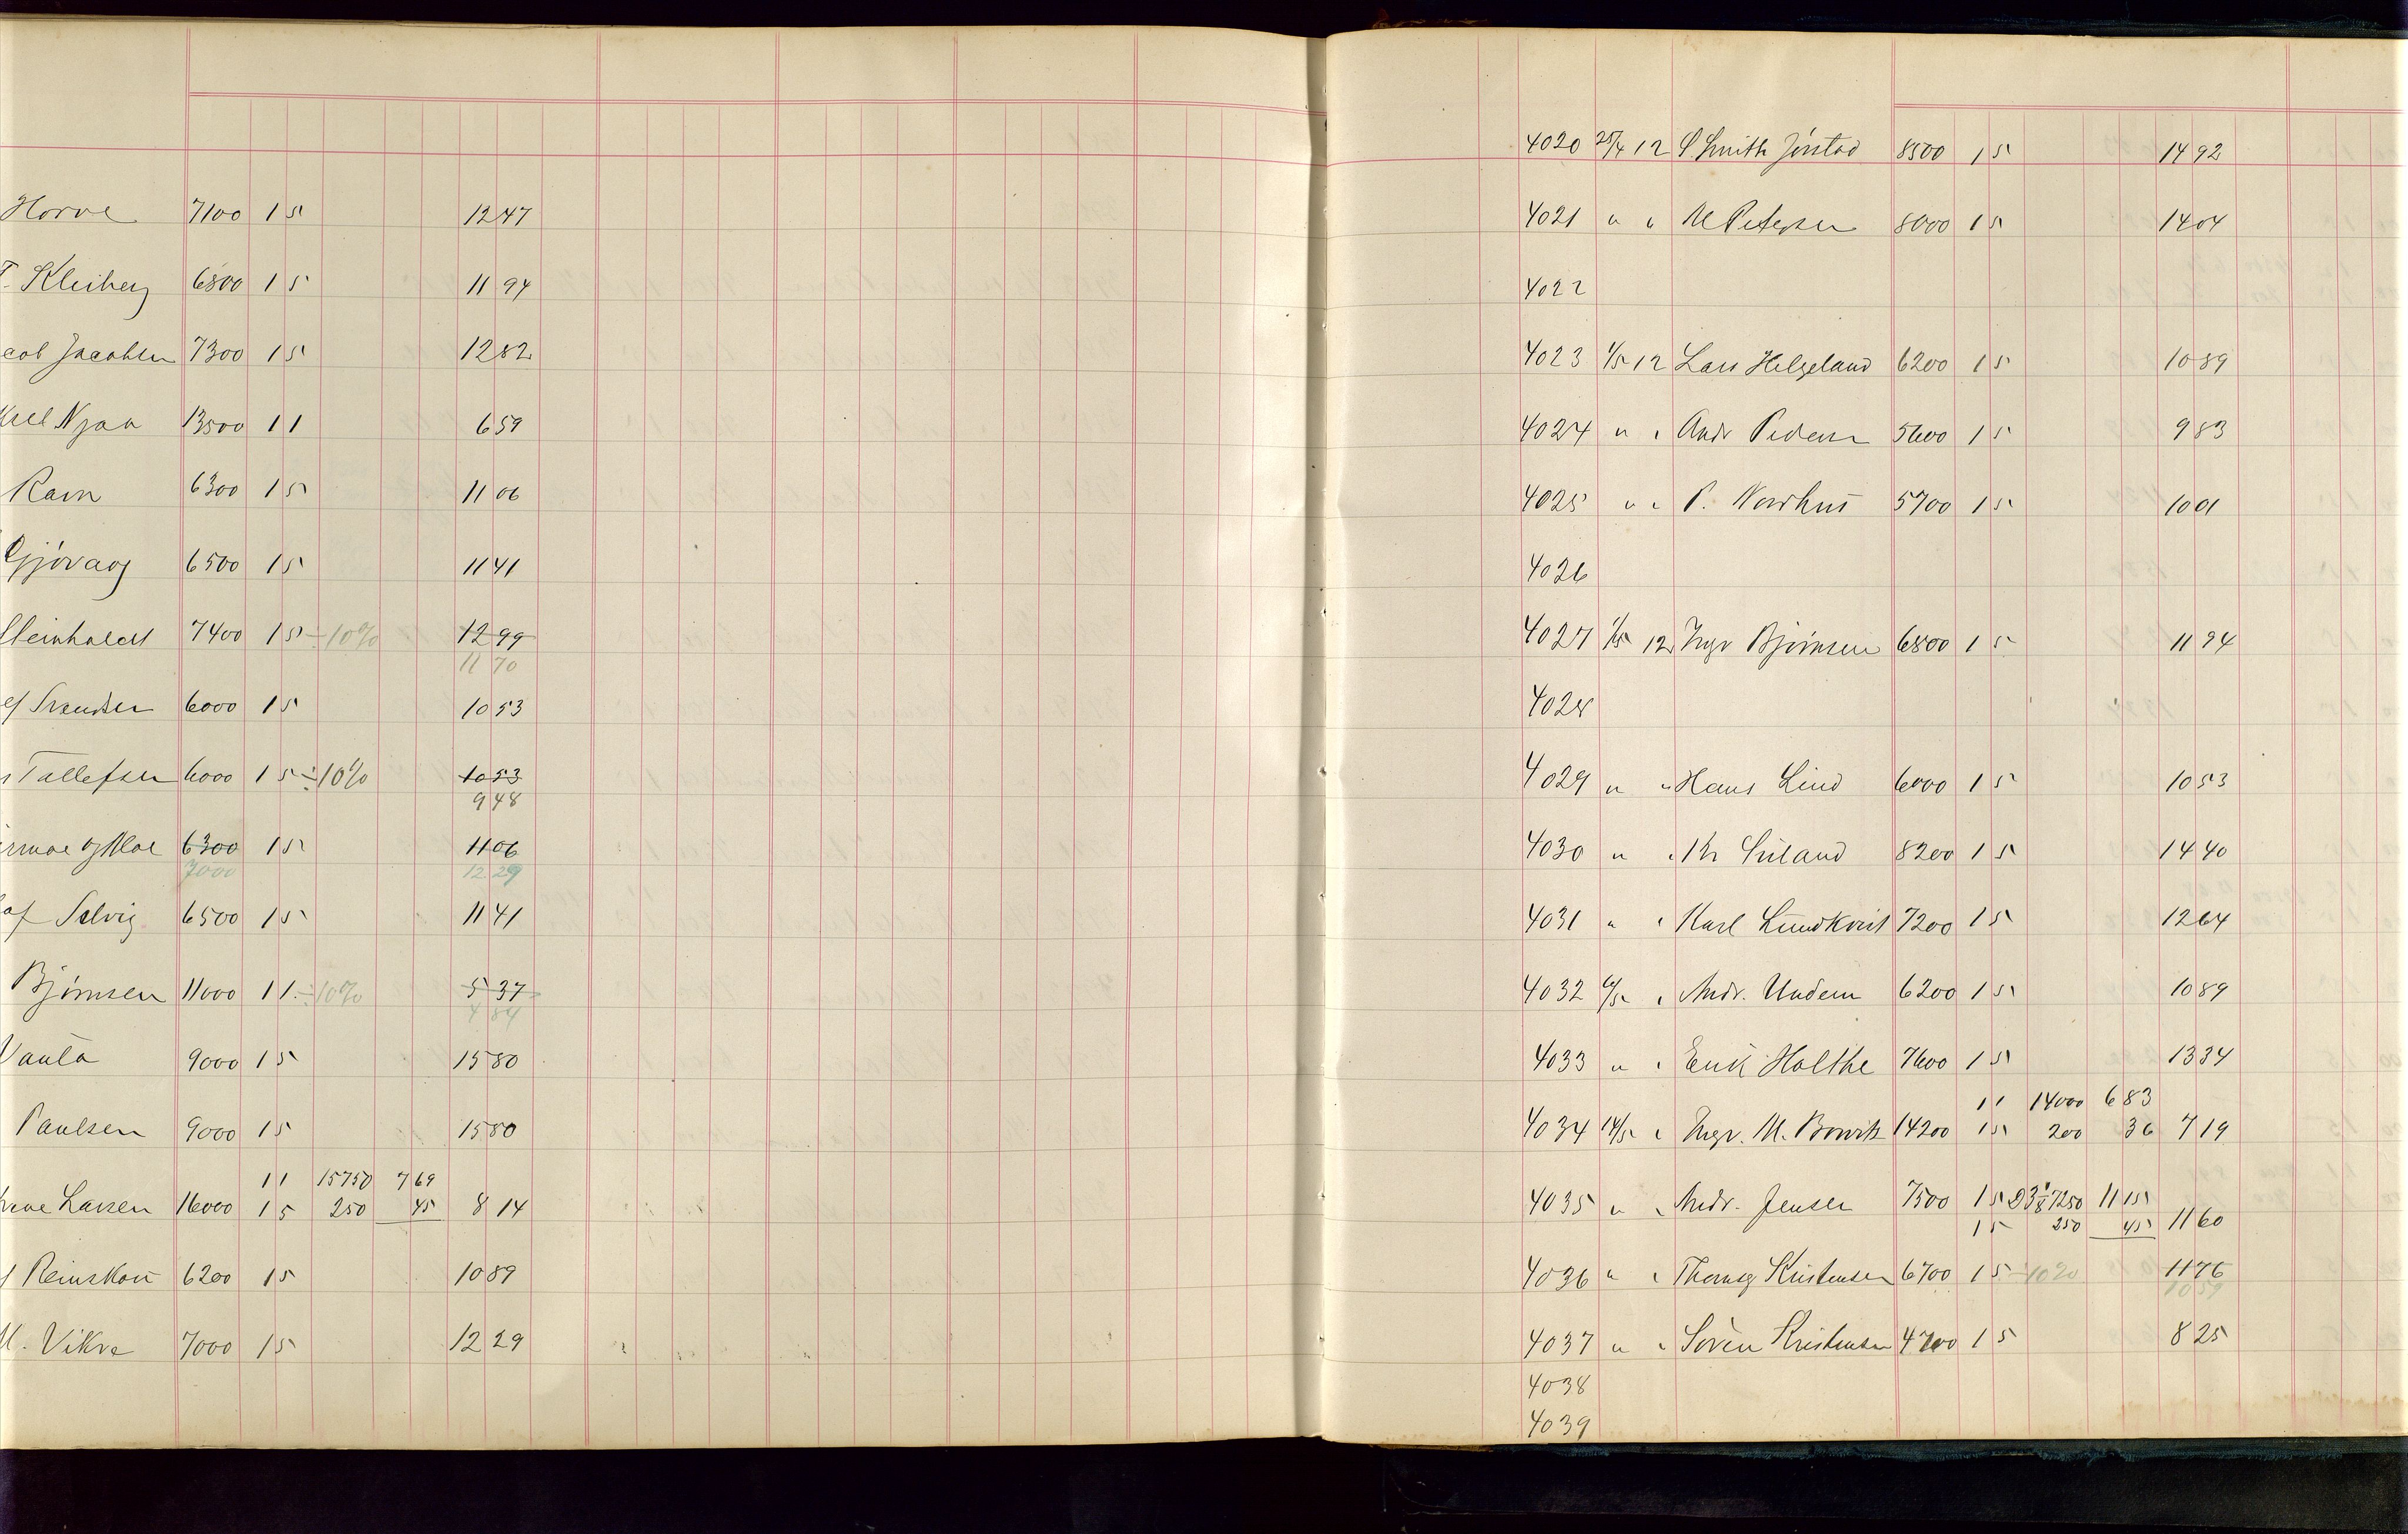 Horve 7100 15 1247
T. Kleiberg 6800 15 1194
cob Jacobsen 7300 15 1282
Njaa 13500 11 659
Ravn 6300 15 1106
Gjövaag 6500 15 1141
Steinholdt 7400 15 ÷10% 1299
1170
Svendsen 6000 15 1053
Tallefsen 6000 15 ÷10% 1053
948
og Moe 6300 15 1106
7000 1229
af Selvig 6500 15 1141
Björnsen 11000 11 ÷10% 537
484
9000 15 1580
Paulsen 9000 15 1580
11 15750 769
Larsen 16000 15 250 45 814
Reinskou 6200 15 1089
M. Vikre 7000 15 1229
4020 25/4 12 S. Smith Jörstad 8500 15 1492
4021 " " M Petersen 8000 15 1404
4022
4023 1/5 12 Lars Helgeland 6200 15 1089
4024 " " Andr Pedersen 5600 15 983
4025 " " P. Nordhus 5700 15 1001
4026
4027 1/5 12 Ingv Björnsen 6800 15 1194
4028
4029 " " Hans Lind 6000 15 1053
4030 " " 8200 15 1440
4031 " " Karl Lundkvist 7200 15 1264
4032 6/5 " Andr. Undem 6200 15 1089
4033 " " Erik Holthe 7600 15 1334
11 14000 683
4034 14/5 " Ingv. M. 14200 15 200 36 719
4035 " " Andr. Jensen 7500 15 7250 1115
15 250 45 1160
4036 " " Thomas Kristensen 6700 15 ÷10% 1176
1059
4037 " " Sören Kristensen 4700 15 825
4038
4039